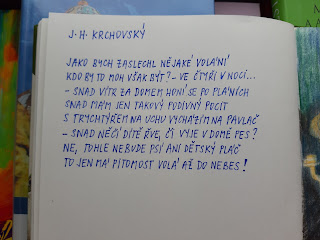 J. H. KRCHOVSKÝ
JAKO BYCH ZASLECHL NĚJAKÉ VOLÁNÍ
KDO BY TO MOH VŠAK BÝT? – VE ČTYŘI V NOCI...
– SNAD VÍTR ZA DOMEM HONÍ SE PO PLÁNÍCH
SNAD MÁM JEN TAKOVÝ PODIVNÝ POCIT
S TRYCHTÝŘEM NA UCHU VYCHÁZÍM NA PAVLAČ
– SNAD NĚČÍ DÍTĚ ŘVE, ČI VYJE V DOMĚ PES?
NE, TOHLE NEBUDE PSÍ ANI DĚTSKÝ PLÁČ
TO JEN MÁ PITOMOST VOLÁ AŽ DO NEBES!